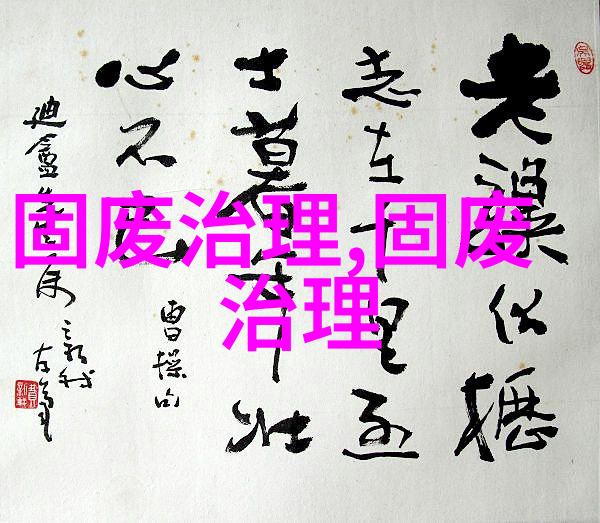 固废治理,固废
治理
老驥伏櫪
志在千里烈
士暮年壮
心不已
曹操句